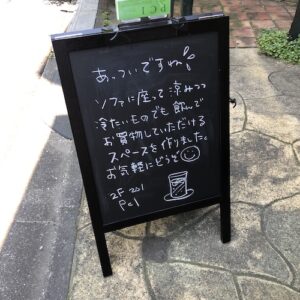 あっついですね!!
ソファに座って涼みつつ
冷たいものでも飲んで
お買物していただける
スペースを作りました。
お気軽にどうぞ
2F 201
Pcl